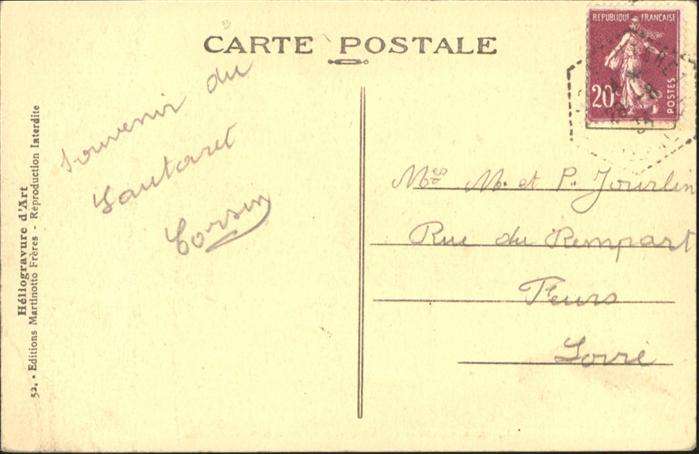 CARTE POSTALE
REPUBLIQUE FRANÇAISE
20c
POSTES
Souvenir du
Lautaret
Corsin
Mrs M. et P. Jourlin
Rue du Rempart
Feurs
Loire
Héliogravure d'Art
52. - Editions Martinotto Frères - Reproduction Interdite